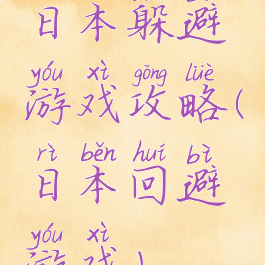 日本躲避
yóu xì gōng lüè
游戏攻略(
rì běn huí bì
日本回避
yóu xì
游戏)